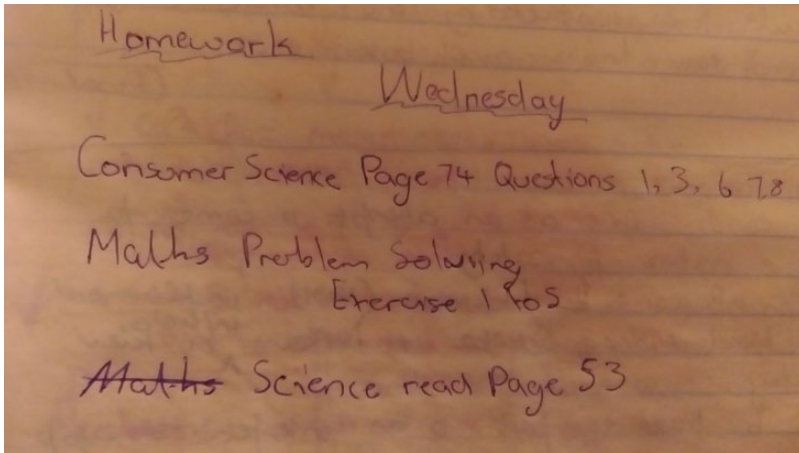 Homework
Wednesday
Consumer Science Page 74 Questions 1, 3, 6, 7, 8
Maths Problem Solving
Exercise 1 to 5
Maths Science read Page 53